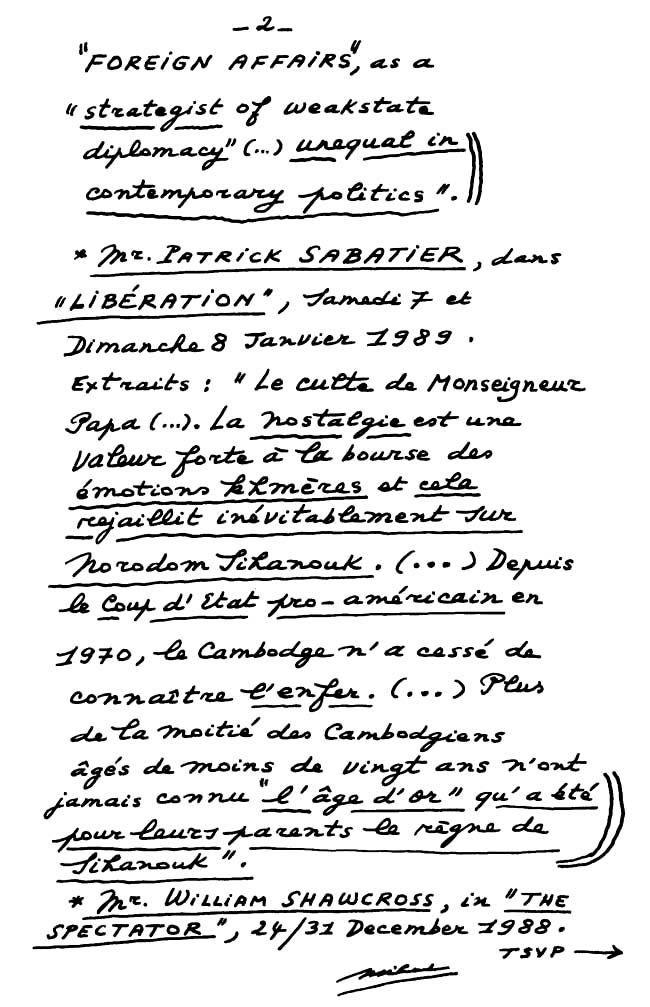 - 2 -
"FOREIGN AFFAIRS", as a
"strategist of weakstate
diplomacy" (...) unequal in
contemporary politics".
* Mr. PATRICK SABATIER, dans
"LIBÉRATION", Samedi 7 et
Dimanche 8 Janvier 1989.
Extraits : "Le culte de Monseigneur
Papa (...). La nostalgie est une
valeur forte à la bourse des
émotions khmères et cela
rejaillit inévitablement sur
Norodom Sihanouk. (...) Depuis
le Coup d'Etat pro-américain en
1970, le Cambodge n'a cessé de
connaître l'enfer. (...) Plus
de la moitié des Cambodgiens
âgés de moins de vingt ans n'ont
jamais connu "l'âge d'or" qu'a été
pour leurs parents le règne de
Sihanouk".
* Mr. WILLIAM SHAWCROSS, in "THE
SPECTATOR", 24/31 December 1988.
TSVP →